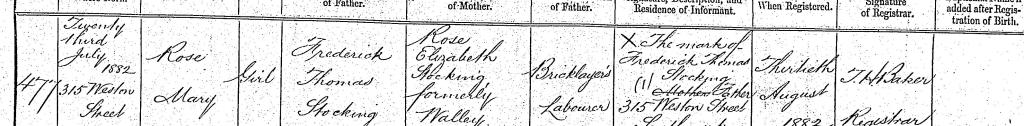 of Father.
of Mother.
of Father.
Residence of Informant.
When Registered.
Signature
of Registrar.
added after Regis-
tration of Birth.
477
Twenty
third
July 1882
315 Weston
Street
Rose
Mary
Girl
Frederick
Thomas
Stocking
Rose
Elizabeth
Stocking
formerly
Walley
Bricklayer's
Labourer
X The mark of
Frederick Thomas
Stocking
(1) Mother Father
315 Weston Street
Thirtieth
August
1882
T.H. Baker
Registrar